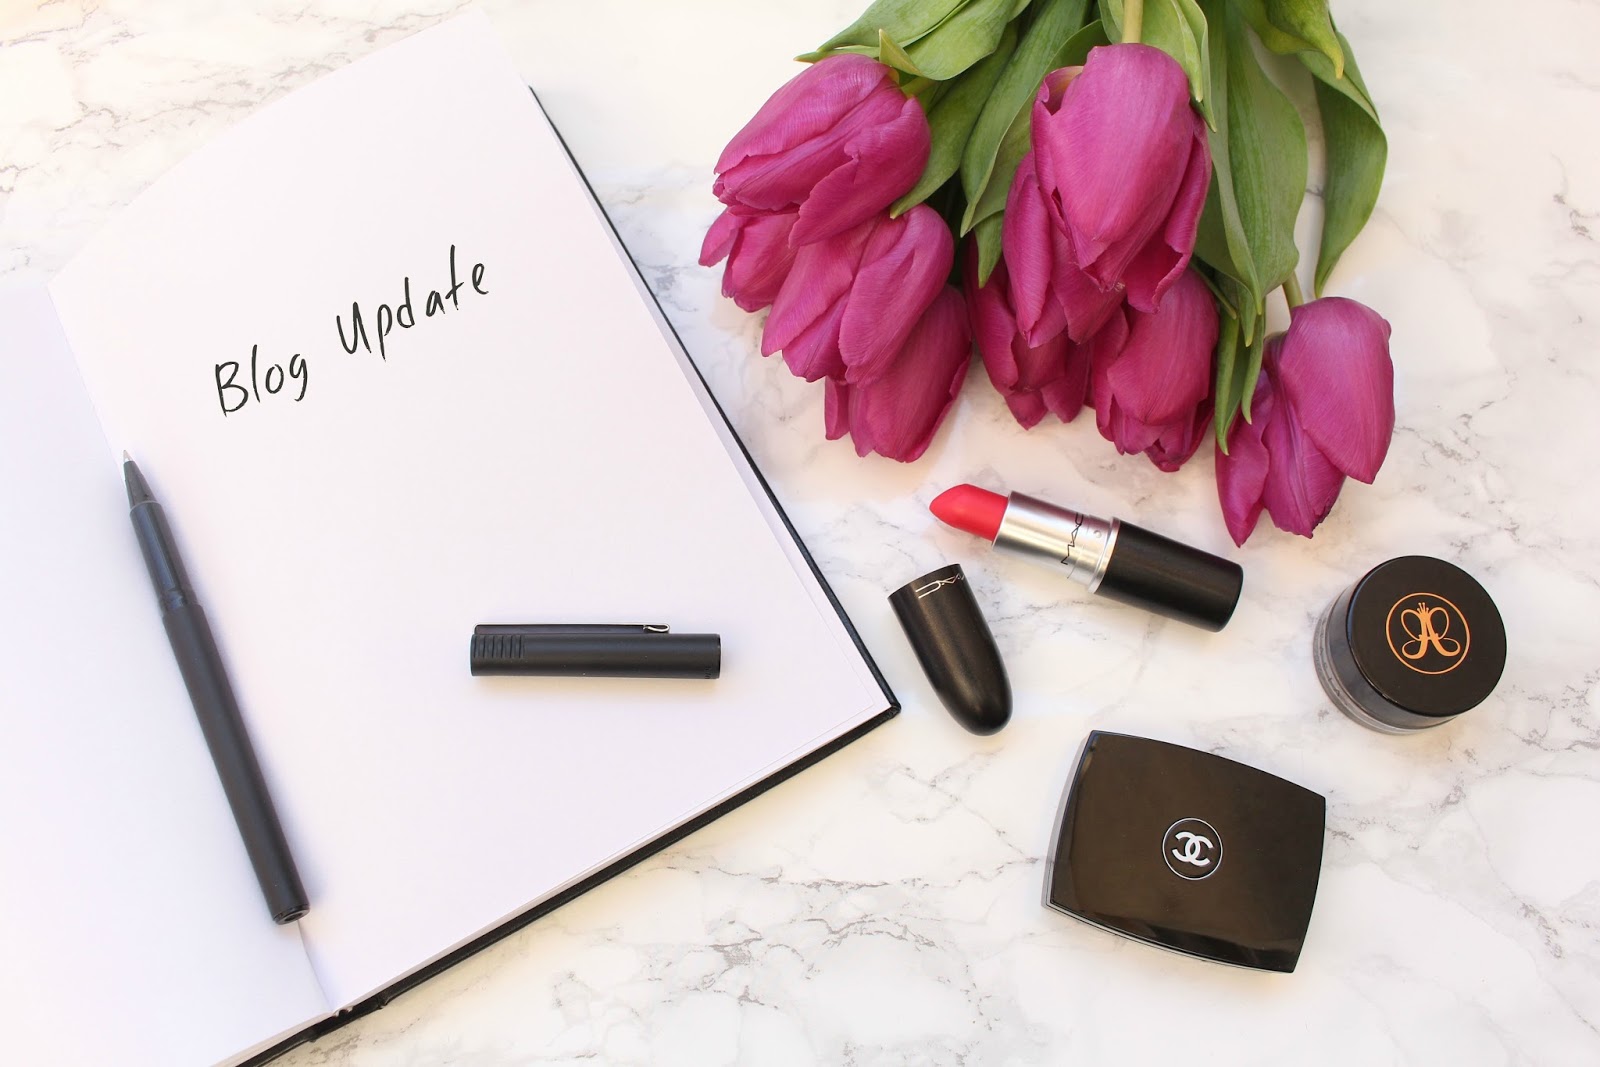 Blog Update
MAC
MAC